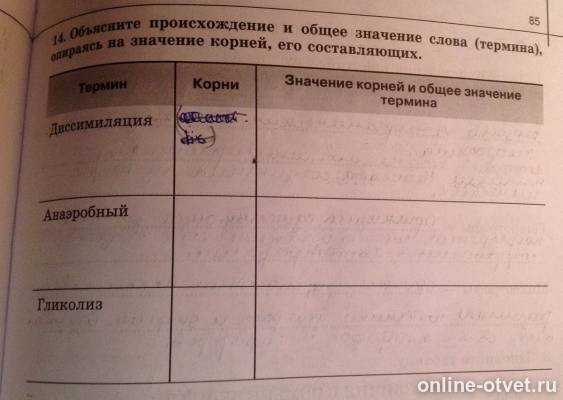 85
14. Объясните происхождение и общее значение слова (термина),
опираясь на значение корней, его составляющих.
Термин
Корни
Значение корней и общее значение
термина
Диссимиляция
Анаэробный
Гликолиз
online-otvet.ru